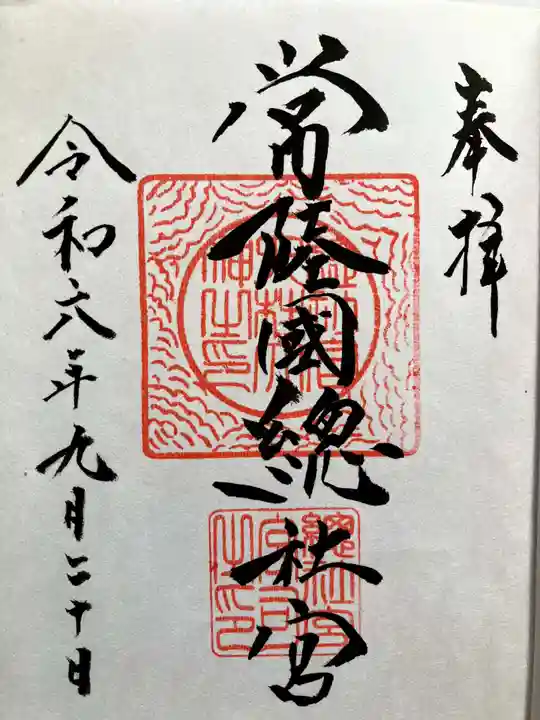 奉拝
常陸國總社宮
令和六年九月二十日